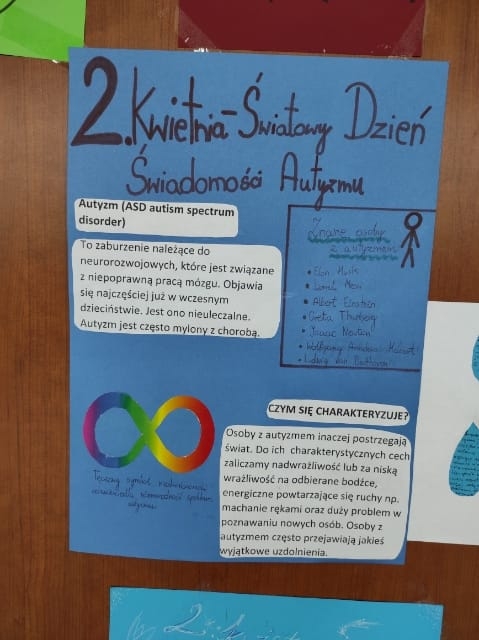 2. Kwietnia - Światowy Dzień
Świadomości Autyzmu
Autyzm (ASD autism spectrum
disorder)
To zaburzenie należące do
neurorozwojowych, które jest związane
z niepoprawną pracą mózgu. Objawia
się najczęściej już w wczesnym
dzieciństwie. Jest ono nieuleczalne.
Autyzm jest często mylony z chorobą.
Znane osoby
z autyzmem
• Elon Musk
• Messi
• Albert Einstein
• Greta Thunberg
• Isaac Newton
• Wolfgang Amadeus Mozart
• Ludwig van Beethoven
Tęczowy symbol nieskończoności
spektrum
autyzmu
CZYM SIĘ CHARAKTERYZUJE?
Osoby z autyzmem inaczej postrzegają
świat. Do ich charakterystycznych cech
zaliczamy nadwrażliwość lub za niską
wrażliwość na odbierane bodźce,
energiczne powtarzające się ruchy np.
machanie rękami oraz duży problem w
poznawaniu nowych osób. Osoby z
autyzmem często przejawiają jakieś
wyjątkowe uzdolnienia.